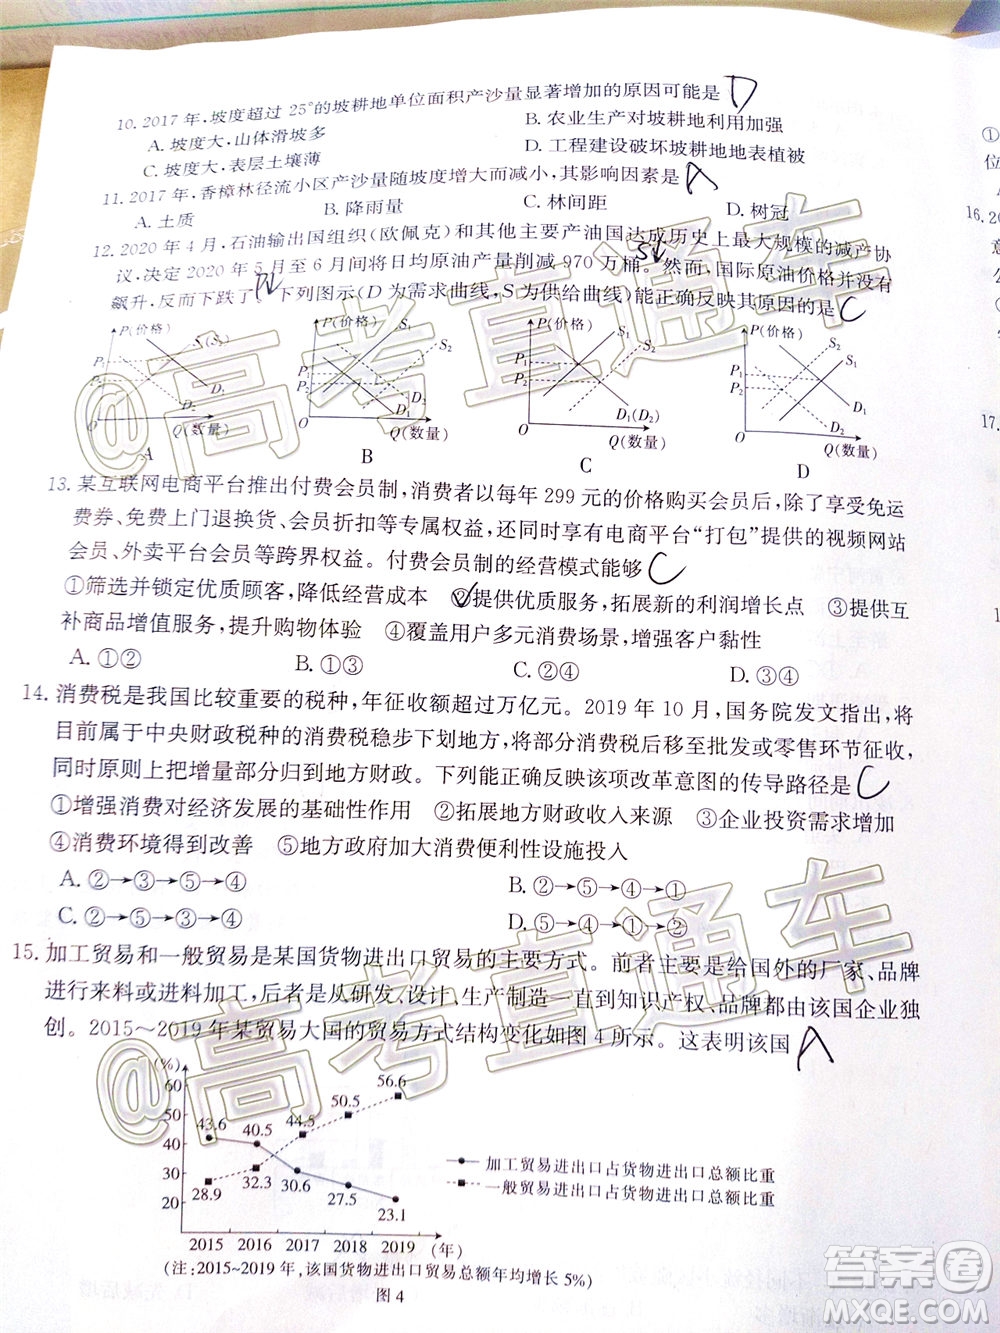 10. 2017 年,坡度超过 25°的坡耕地单位面积产沙量显著增加的原因可能是 D
A. 坡度大,山体滑坡多 B. 农业生产对坡耕地利用加强
C. 坡度大,表层土壤薄 D. 工程建设破坏坡耕地地表植被
11. 2017 年,香樟林径流小区产沙量随坡度增大而减小,其影响因素是 A
A. 土质 B. 降雨量 C. 林间距 D. 树冠
12. 2020 年 4 月,石油输出国组织(欧佩克)和其他主要产油国达成历史上最大规模的减产协
议,决定 2020 年 5 月至 6 月间将日均原油产量削减 970 万桶。然而,国际原油价格并没有
S↓
飙升,反而下跌了。下列图示(D 为需求曲线,S 为供给曲线)能正确反映其原因的是 C
P(价格) P(价格) P(价格) P(价格)
S₁(S₂) S₂ S₁ S₂ S₂ S₁
P₁ P₂ P₁ P₂ P₁ P₂
D₁ D₂ D₂ D₁ D₁(D₂) D₁ D₂
O Q(数量) O Q(数量) O Q(数量) O Q(数量)
A B C D
13. 某互联网电商平台推出付费会员制,消费者以每年 299 元的价格购买会员后,除了享受免运
费券、免费上门退换货、会员折扣等专属权益,还同时享有电商平台“打包”提供的视频网站
会员、外卖平台会员等跨界权益。付费会员制的经营模式能够 C
①筛选并锁定优质顾客,降低经营成本 ②提供优质服务,拓展新的利润增长点 ③提供互
补商品增值服务,提升购物体验 ④覆盖用户多元消费场景,增强客户黏性
A. ①② B. ①③ C. ②④ D. ③④
14. 消费税是我国比较重要的税种,年征收额超过万亿元。2019 年 10 月,国务院发文指出,将
目前属于中央财政税种的消费税稳步下划地方,将部分消费税后移至批发或零售环节征收,
同时原则上把增量部分归到地方财政。下列能正确反映该项改革意图的传导路径是 C
①增强消费对经济发展的基础性作用 ②拓展地方财政收入来源 ③企业投资需求增加
④消费环境得到改善 ⑤地方政府加大消费便利性设施投入
A. ②→③→⑤→④ B. ②→⑤→④→①
C. ②→⑤→③→④ D. ⑤→④→①→②
15. 加工贸易和一般贸易是某国货物进出口贸易的主要方式。前者主要是给国外的厂家、品牌
进行来料或进料加工,后者是从研发、设计、生产制造一直到知识产权、品牌都由该国企业独
创。2015～2019 年某贸易大国的贸易方式结构变化如图 4 所示。这表明该国 A
(%)
60 50 40 30 20
43.6 40.5 44.5 50.5 56.6
28.9 32.3 30.6 27.5 23.1
加工贸易进出口占货物进出口总额比重
一般贸易进出口占货物进出口总额比重
2015 2016 2017 2018 2019 (年)
(注:2015~2019 年,该国货物进出口贸易总额年均增长 5%)
图 4
①
位
A
16. 2
意
公
①
17.
@高考直通车
@高考直通车
答案圈
MXQE.COM